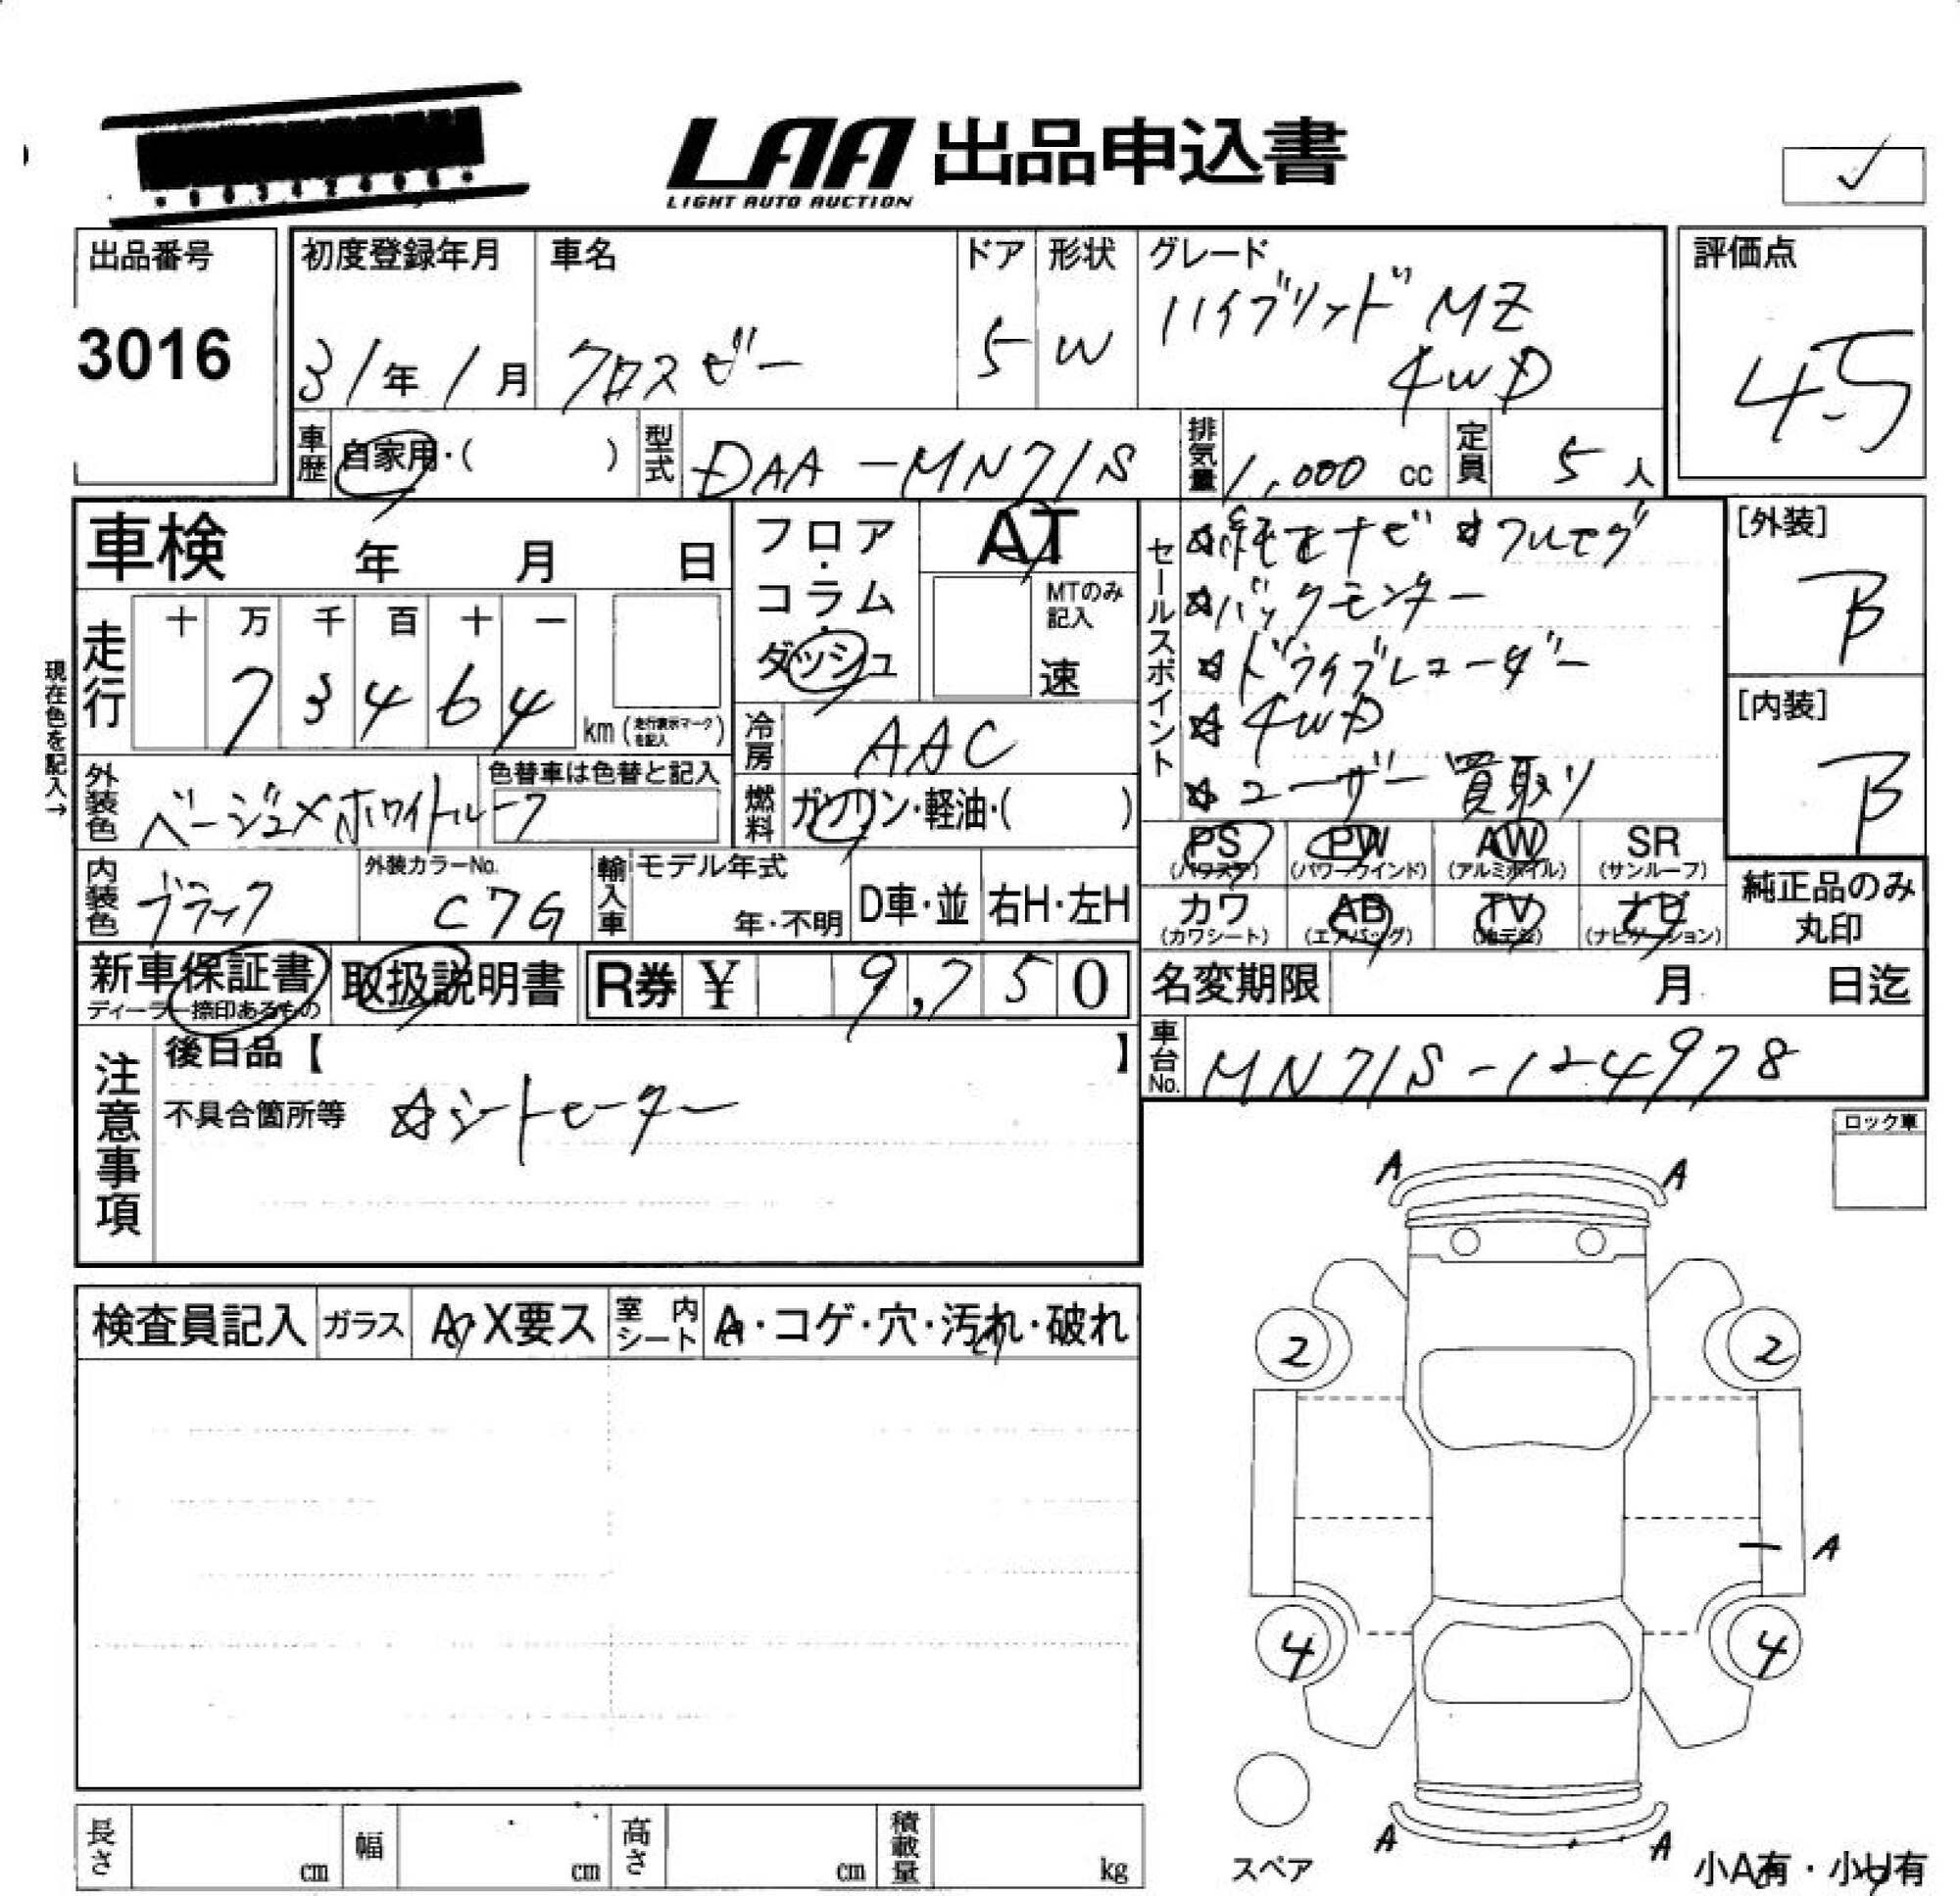 LAA 出品申込書
LIGHT AUTO AUCTION
✓
出品番号
3016
初度登録年月
31年1月
車名
クロスビー
ドア
5
形状
W
グレード
ハイブリッド MZ
4WD
評価点
4.5
車歴
自家用・( )
型式
DAA-MN71S
排気量
1,000 cc
定員
5人
車検 年 月 日
フロア・コラム・ダッシュ
AT
MTのみ記入
速
セールスポイント
☆純正ナビ ☆フルセグ
☆バックモニター
☆ドライブレコーダー
☆4WD
☆ユーザー買取り
[外装]
B
[内装]
B
現在色を記入→
走行
十 万 千 百 十 一
7 3 4 6 4
km (走行表示マークを記入)
冷房
AAC
外装色
ベージュ×ホワイトルーフ
色替車は色替と記入
燃料
ガソリン・軽油・( )
PS
(パワステ)
PW
(パワーウインド)
AW
(アルミホイル)
SR
(サンルーフ)
カワ
(カワシート)
AB
(エアバッグ)
TV
(地デジ)
ナビ
(ナビゲーション)
純正品のみ
丸印
内装色
ブラック
外装カラーNo.
C7G
輸入車
モデル年式
年・不明
D車・並
右H・左H
新車保証書
ディーラー捺印あるもの
取扱説明書
R券 ¥ 9,750
名変期限 月 日迄
車台No.
MN71S-124978
注意事項
後日品【 】
不具合箇所等 ☆シートヒーター
ロック車
検査員記入
ガラス
A・X要ス
室内シート
A・コゲ・穴・汚れ・破れ
A
A
2
2
A
4
4
A
A
スペア
小A有・小U有
長さ cm
幅 cm
高さ cm
積載量 kg